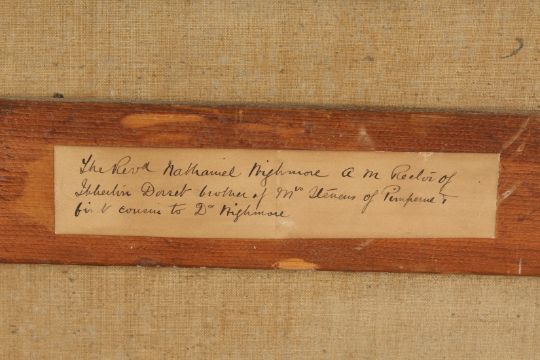 The Revd Nathaniel Highmore A M Rector of
Ibberton Dorset brother of Mrs Stevens of Pimperne &
first cousin to Dr Highmore